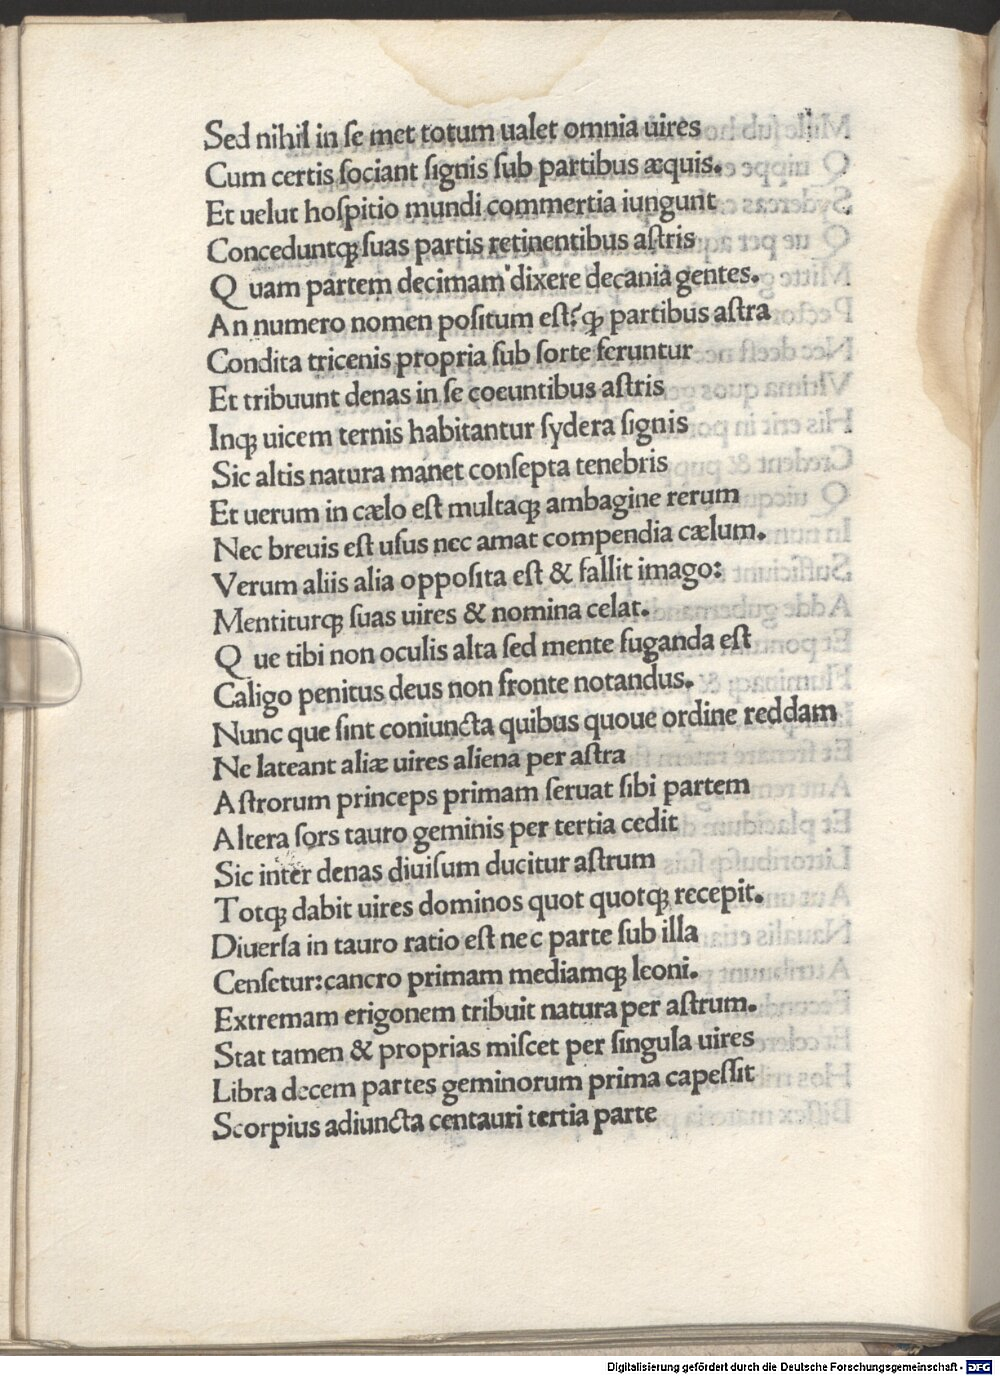 Sed nihil in ſe met totum ualet omnia uires
Cum certis ſociant ſignis ſub partibus æquis.
Et uelut hoſpitio mundi commertia iungunt
Conceduntqꝫ ſuas partis retinentibus aſtris
Q uam partem decimam dixere decania gentes.
An numero nomen poſitum eſt? qꝫ partibus aſtra
Condita tricenis propria ſub ſorte feruntur
Et tribuunt denas in ſe coeuntibus aſtris
Inqꝫ uicem ternis habitantur ſydera ſignis
Sic altis natura manet conſepta tenebris
Et uerum in cælo eſt multaqꝫ ambagine rerum
Nec breuis eſt uſus nec amat compendia cælum.
Verum aliis alia oppoſita eſt & fallit imago:
Mentiturqꝫ ſuas uires & nomina celat.
Q ue tibi non oculis alta ſed mente fuganda eſt
Caligo penitus deus non fronte notandus.
Nunc que ſint coniuncta quibus quoue ordine reddam
Ne lateant aliæ uires aliena per aſtra
Aſtrorum princeps primam ſeruat ſibi partem
Altera ſors tauro geminis per tertia cedit
Sic inter denas diuiſum ducitur aſtrum
Totqꝫ dabit uires dominos quot quotqꝫ recepit.
Diuerſa in tauro ratio eſt nec parte ſub illa
Cenſetur: cancro primam mediamqꝫ leoni.
Extremam erigonem tribuit natura per aſtrum.
Stat tamen & proprias miſcet per ſingula uires
Libra decem partes geminorum prima capeſſit
Scorpius adiuncta centauri tertia parte
Digitalisierung gefördert durch die Deutsche Forschungsgemeinschaft - DFG